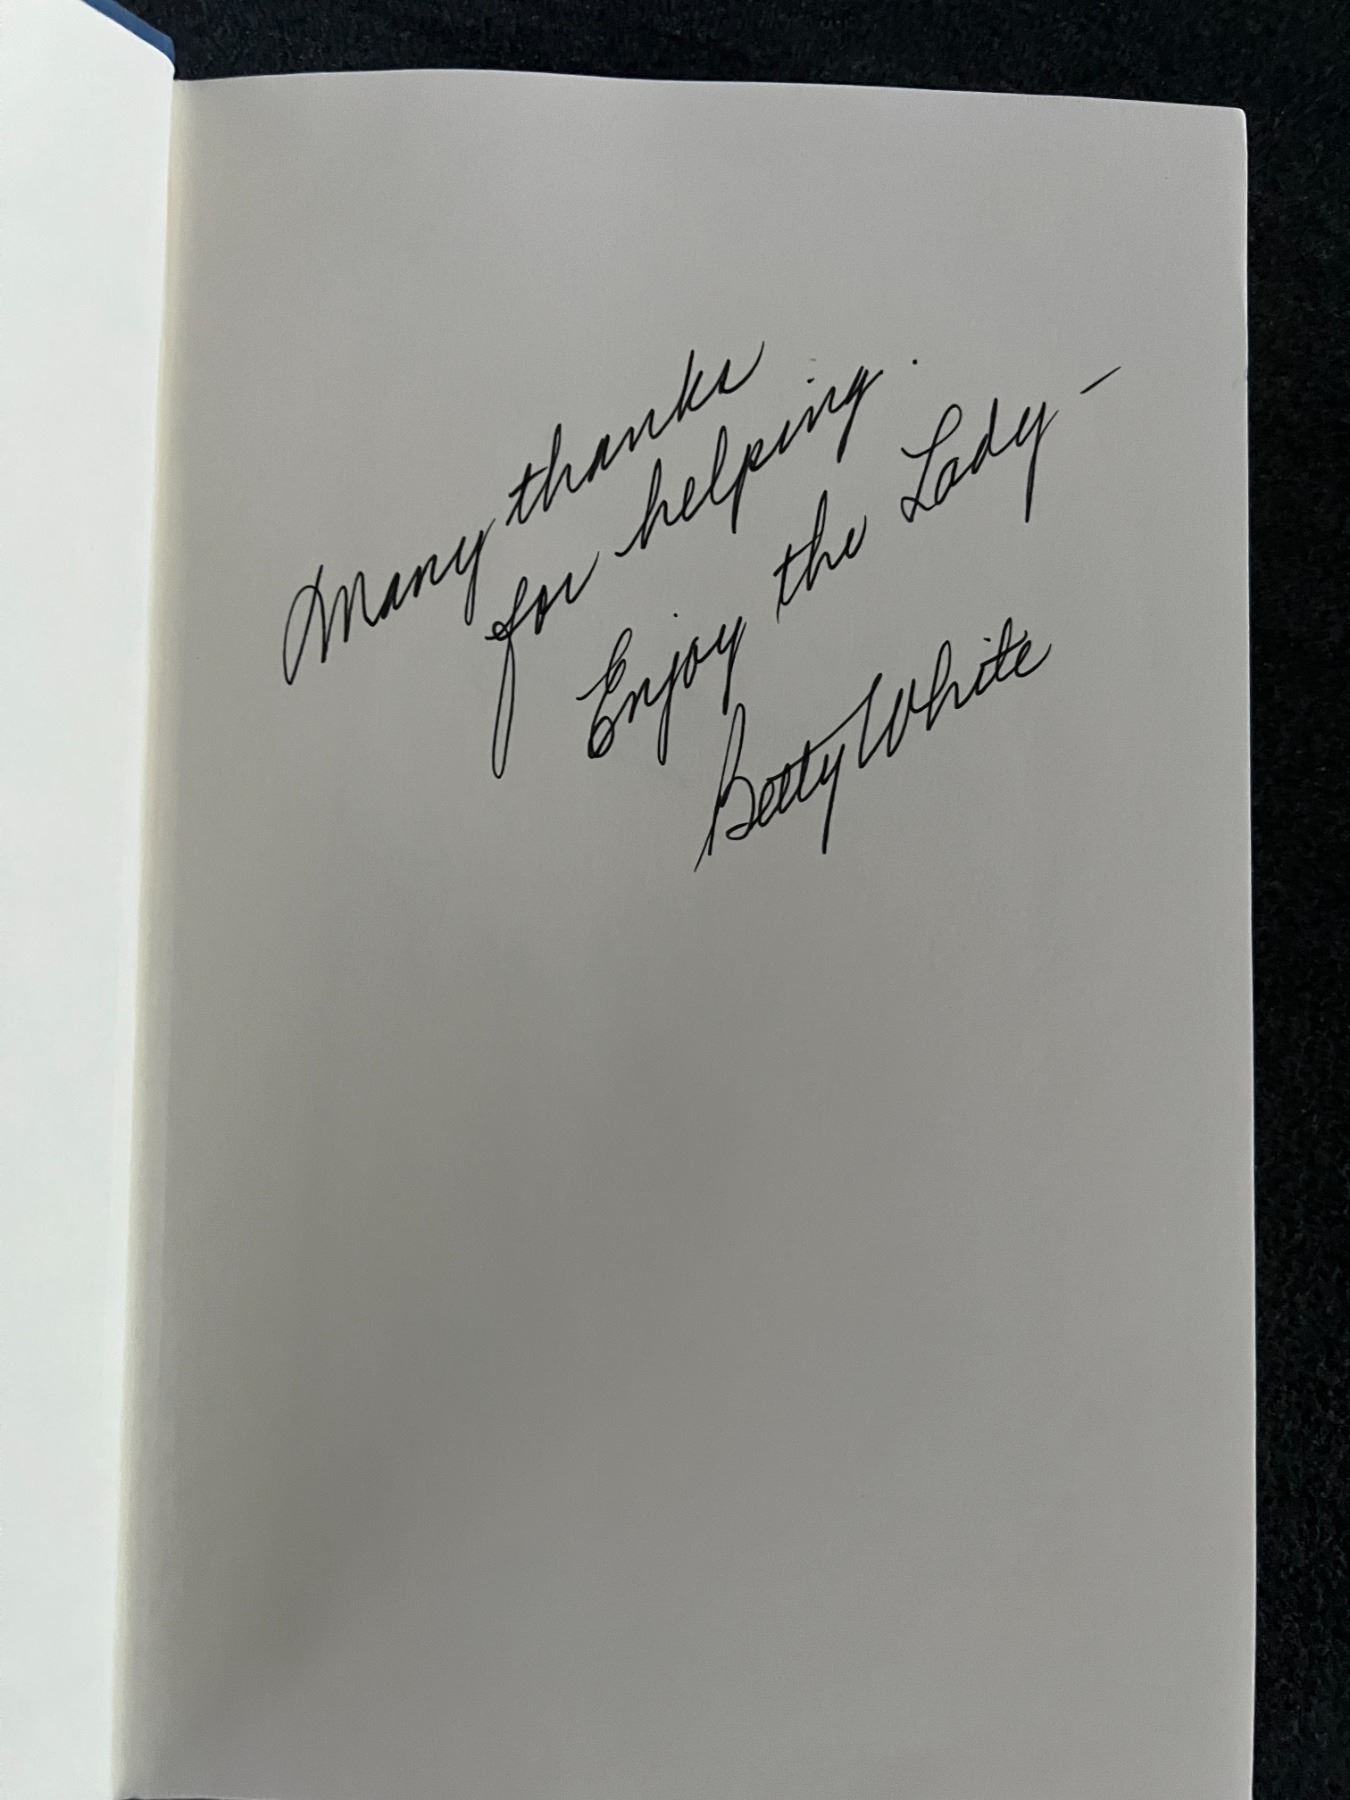 Many thanks
for helping.
Enjoy the Lady -
Betty White